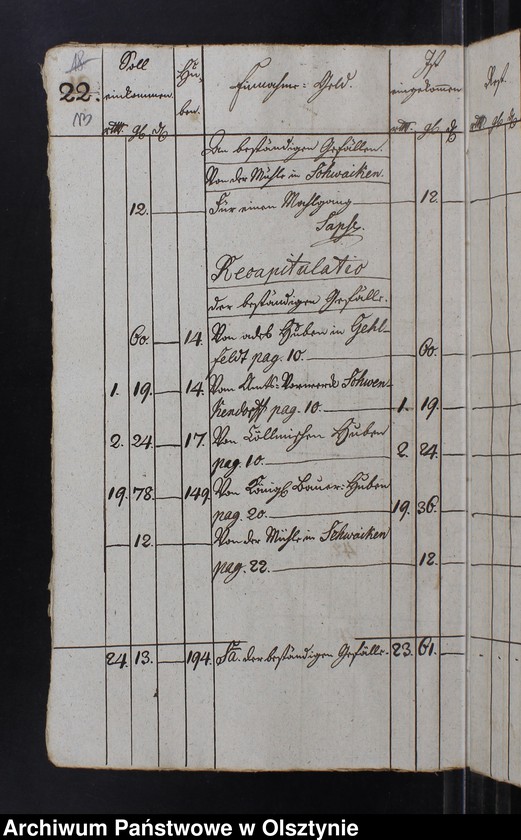 18
22.
113
Soll
einkommen.
rtl. gl. d.
Hu-
ben.
Einnahme-Geld.
Ist
eingekommen
rtl. gl. d.
Rest.
rtl. gl. d.
An beständigen Gefällen.
Von der Mühle in Schwaiken.
12. Für einen Mahlgang 12.
Recapitulatio
der beständigen Gefälle.
60. 14. Von adel. Huben in Gehl-
feldt pag. 10. 60.
1. 19. 14. Vom Amts-Vorwerk Schwen-
kendorff pag. 10. 1. 19.
2. 24. 17. Von Cöllmischen Huben
pag. 10. 2. 24.
19. 78. 149. Von Königl. Bauer-Huben
pag. 20. 19. 36.
12. Von der Mühle in Schwaiken
pag. 22. 12.
24. 13. 194. Sa. der beständigen Gefälle. 23. 61.
Archiwum Państwowe w Olsztynie